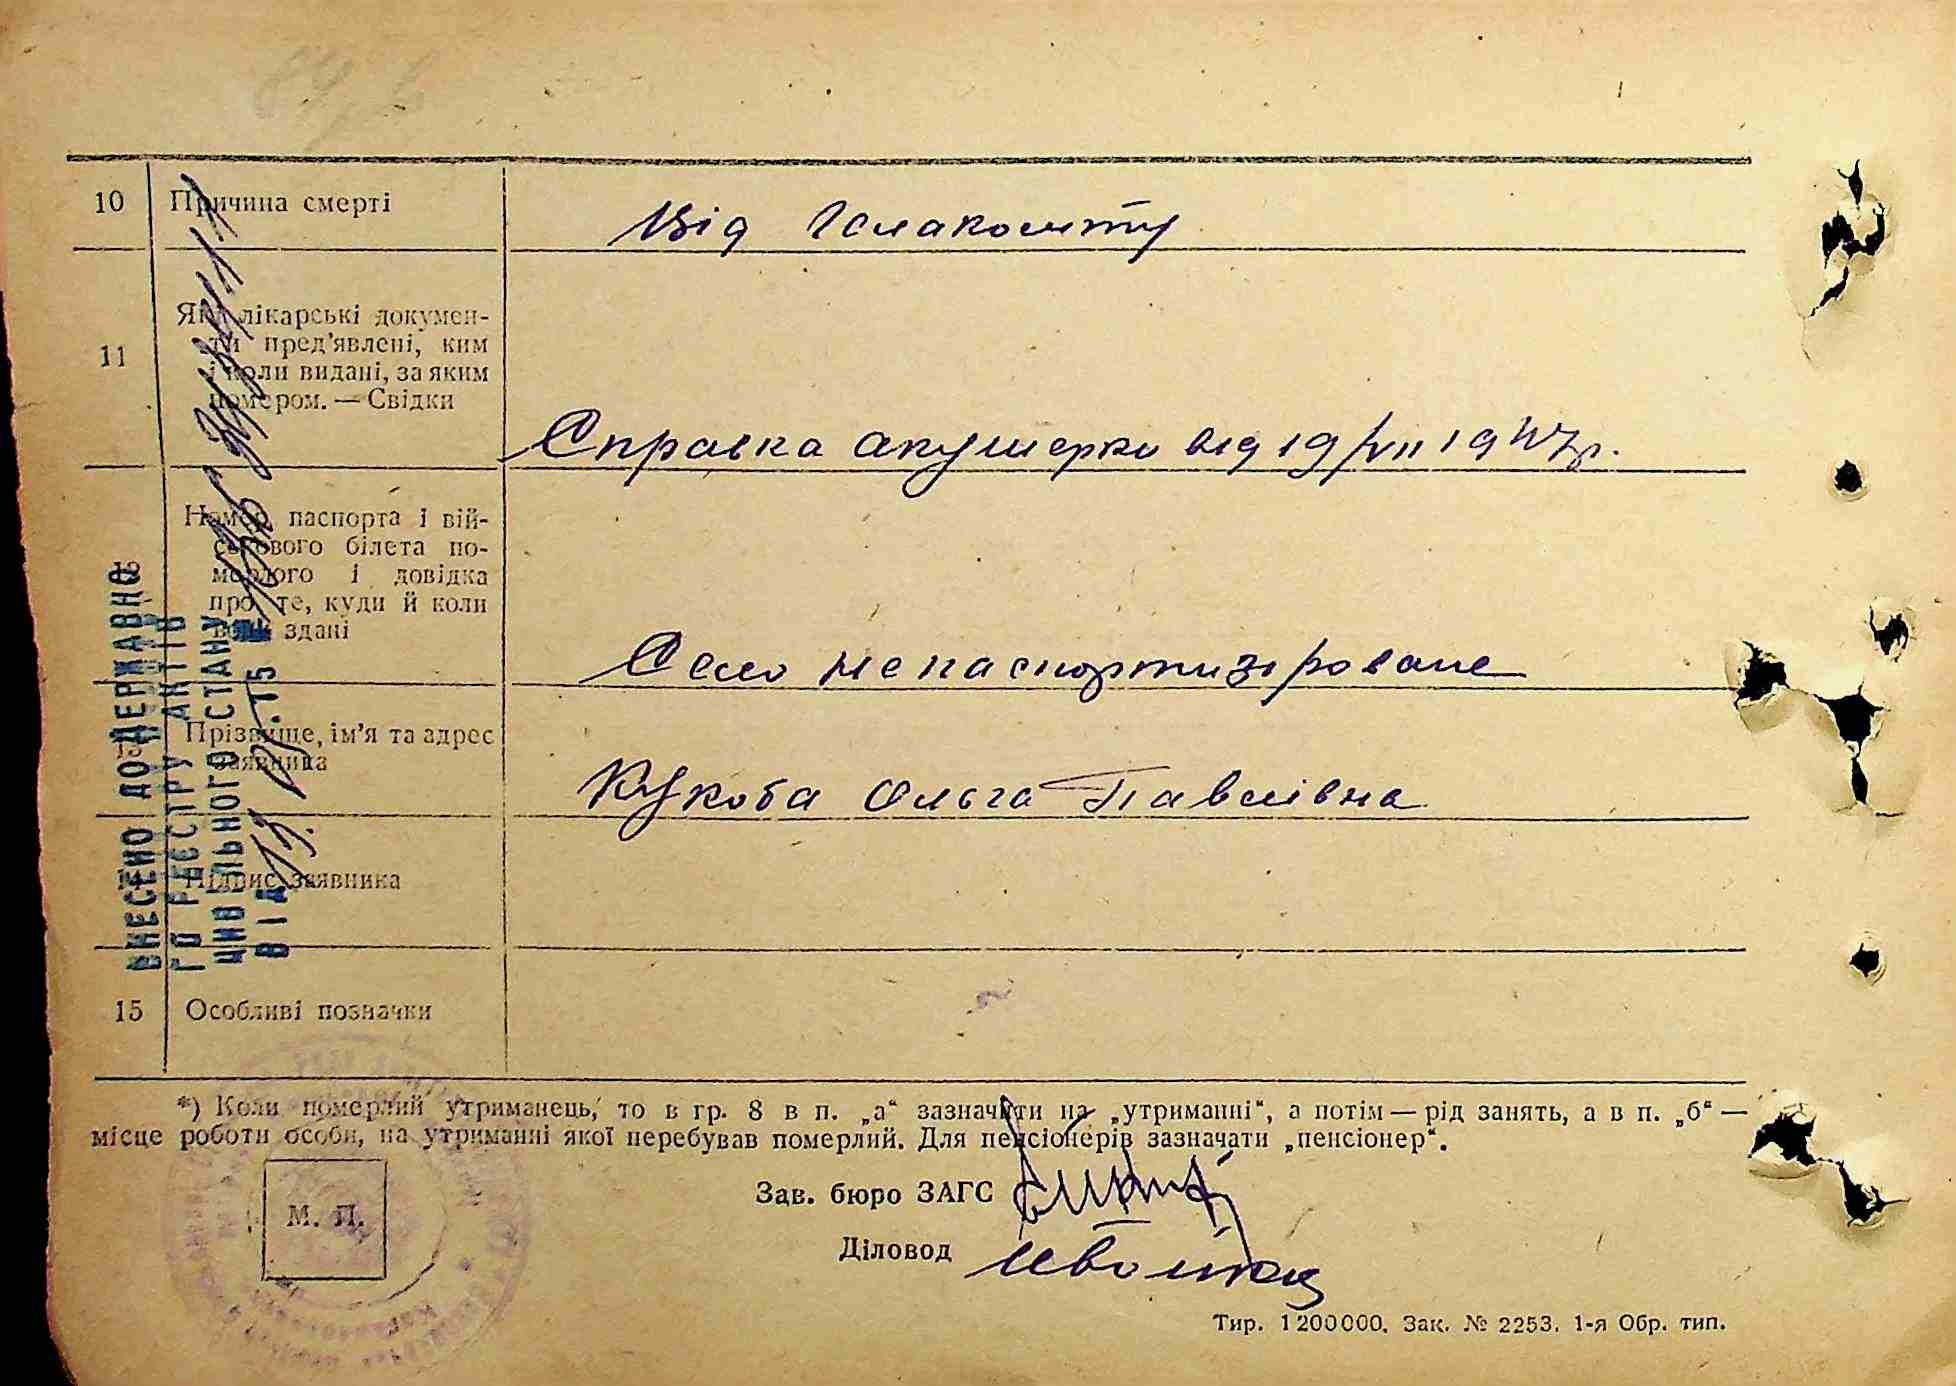 10 Причина смерті
Від
11 Які лікарські докумен-
ти пред'явлені, ким
і коли видані, за яким
номером. — Свідки
Справка акушерки від 19/VII 1947 р.
12 Номер паспорта і вій-
ськового білета по-
мерлого і довідка
про те, куди й коли
вони здані
Село непаспортизіроване
Прізвище, ім'я та адрес
заявника
Кукоба Ольга Павлівна
14 Підпис заявника
15 Особливі позначки
ВНЕСЕНО ДО ДЕРЖАВНО
ГО РЕЄСТРУ АКТІВ
ЦИВІЛЬНОГО СТАНУ
ВІД
*) Коли померлий утриманець, то в гр. 8 в п. „а“ зазначити на „утриманні“, а потім — рід занять, а в п. „б“ —
місце роботи особи, на утриманні якої перебував померлий. Для пенсіонерів зазначати „пенсіонер“.
М. П.
Зав. бюро ЗАГС
Діловод
Тир. 1200000. Зак. № 2253. 1-я Обр. тип.